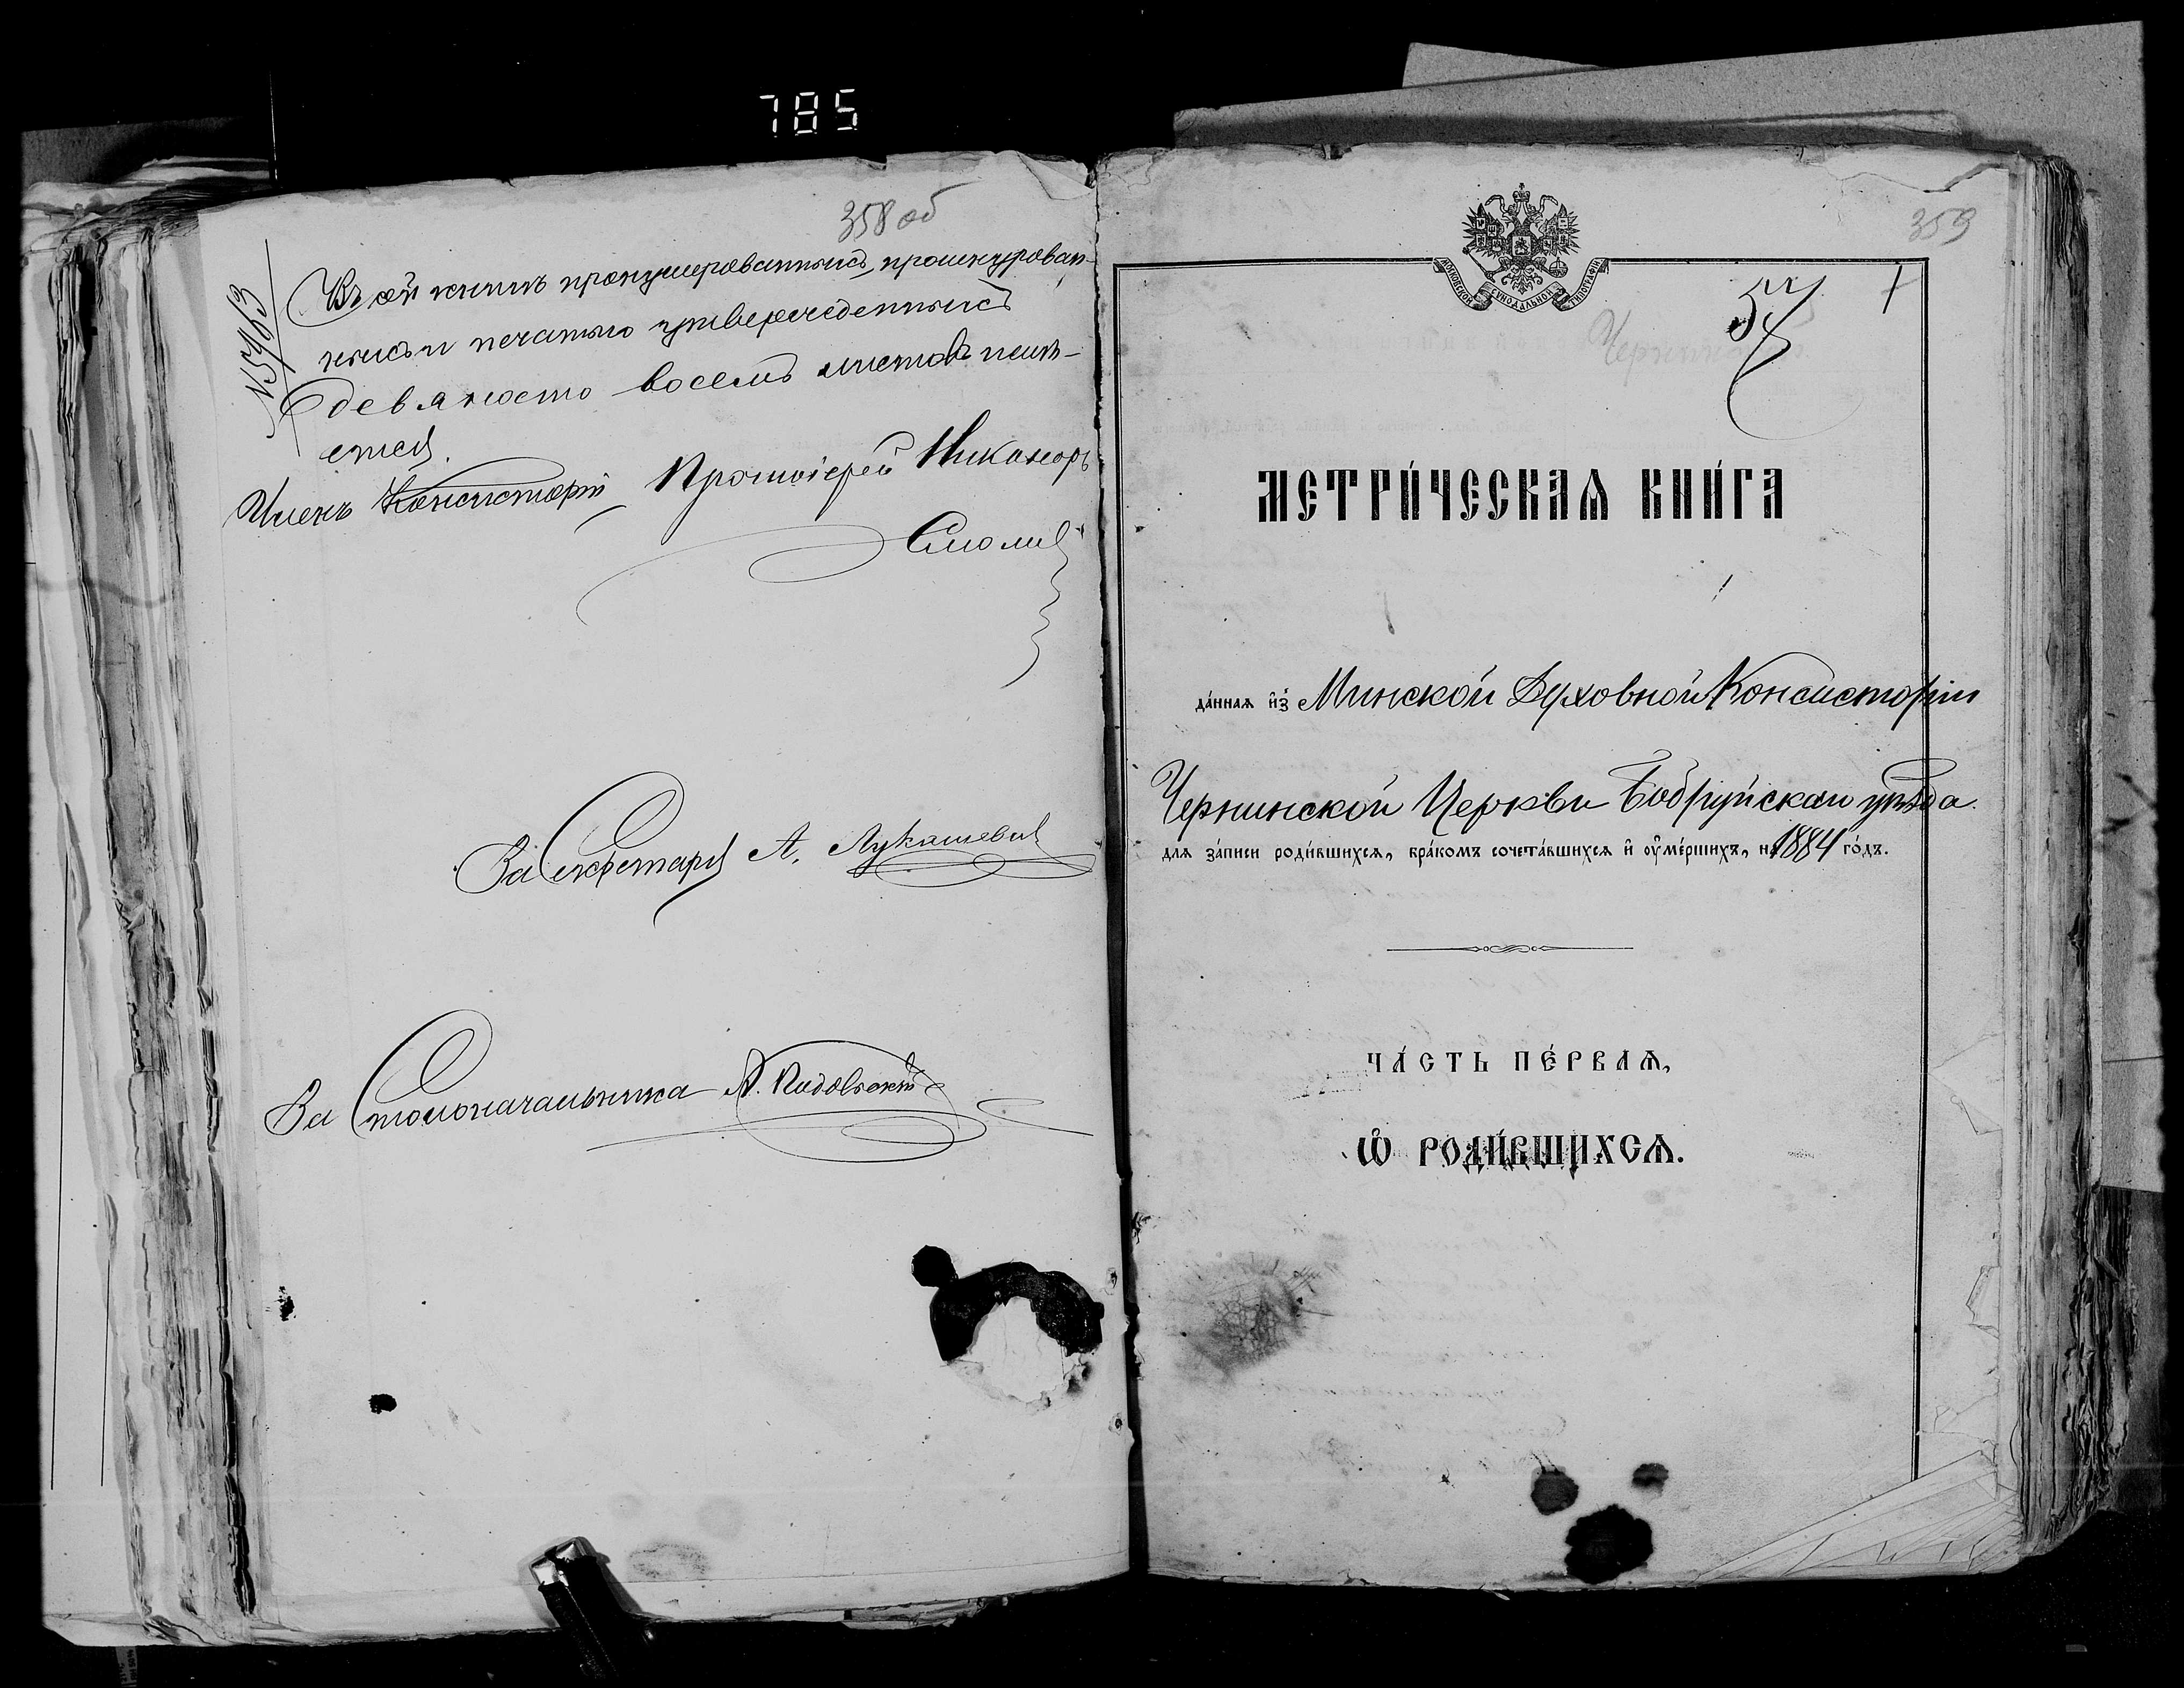 785
358 об
№ 5763
Въ сей книгѣ пронумерованныхъ, прошнурован-
ныхъ и печатью утвержденныхъ
девяносто восемь листовъ имѣ-
ется.
Членъ Консисторіи Протоіерей Никаноръ
Смолич
За Секретаря А. Лукашевич
За Столоначальника А.
359
МОСКОВСКОЙ СѴНОДАЛЬНОЙ ТИПОГРАФІИ
57
1
МЕТРИ́ЧЕСКАѦ КНИ́ГА
да́ннаѧ и҆з̾ Минской Духовной Консисторіи
Чернинской Церкви Бобруйскаго уѣзда
для за́писи роди́вшихсѧ, бра́комъ сочета́вшихсѧ и҆ оу҆ме́ршихъ, на 1884 го́дъ.
ЧА́СТЬ ПЕ́РВАѦ,
Ѡ҆ РОДИ́ВШИХСѦ.